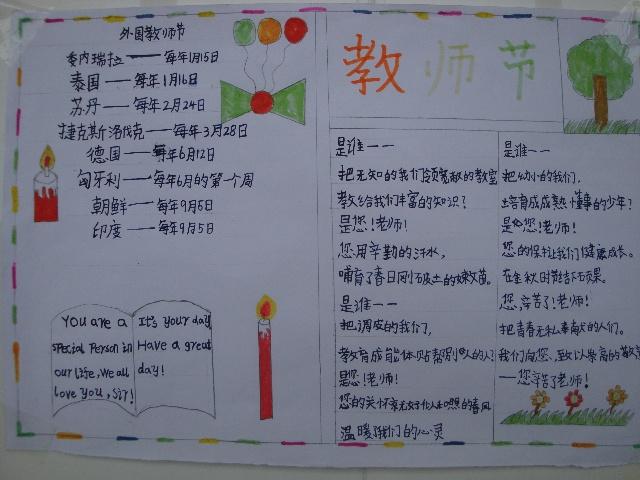 外国教师节
委内瑞拉——每年1月15日
泰国——每年1月16日
苏丹——每年2月24日
捷克斯洛伐克——每年3月28日
德国——每年6月12日
匈牙利——每年6月的第一个周
朝鲜——每年9月5日
印度——每年9月5日
You are a
special Person in
our life, We all
love you, Sir!
It's your day
Have a great
day!
教师节
是谁——
把无知的我们领
教给我们丰富的知识?
是您!老师!
您用辛勤的汗水,
哺育了春日刚破土的嫩苗。
是谁——
把调皮的我们,
教育成能体贴帮别人的人?
是您!老师!
您的关怀
温暖了我们的心灵
是谁——
把幼小的我们,
培育成成熟懂事的少年?
是您!老师!
您的保护让我们健康成长。
在金秋时
您辛苦了!老师!
把青春无私奉献的人们。
我们向您,致以崇高的敬意
——您辛苦了老师!